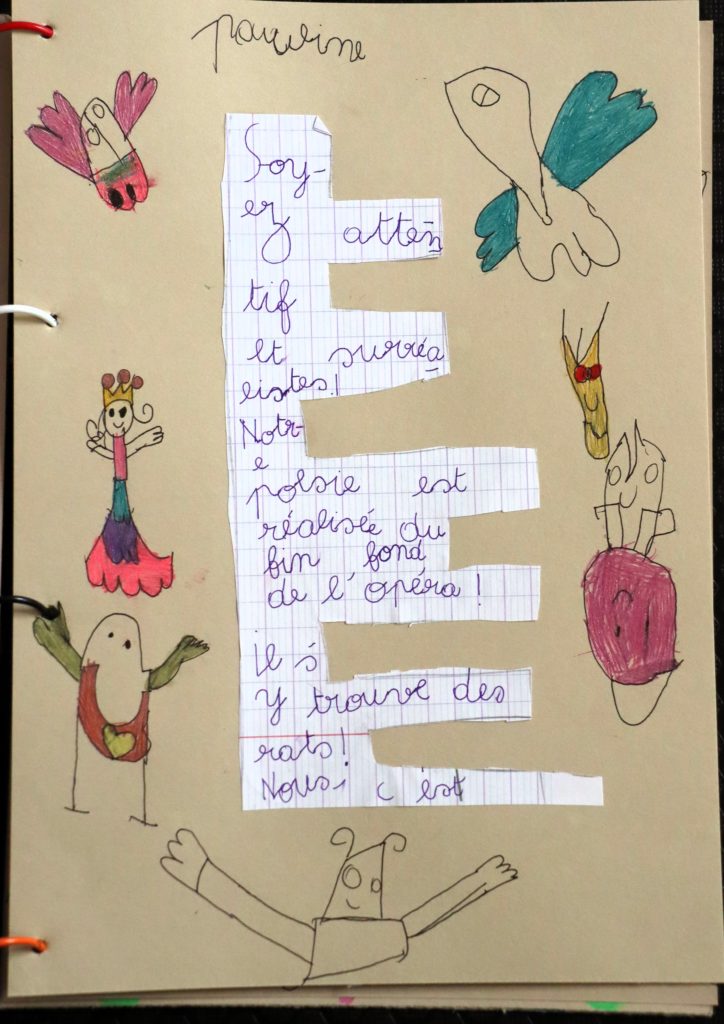 pauline
Soy-
ez atten
tif
et surréa
listes!
Notr-
e
poésie est
réalisée du
fin fond
de l'opéra!
il s'
y trouve des
rats!
Nous, c'est